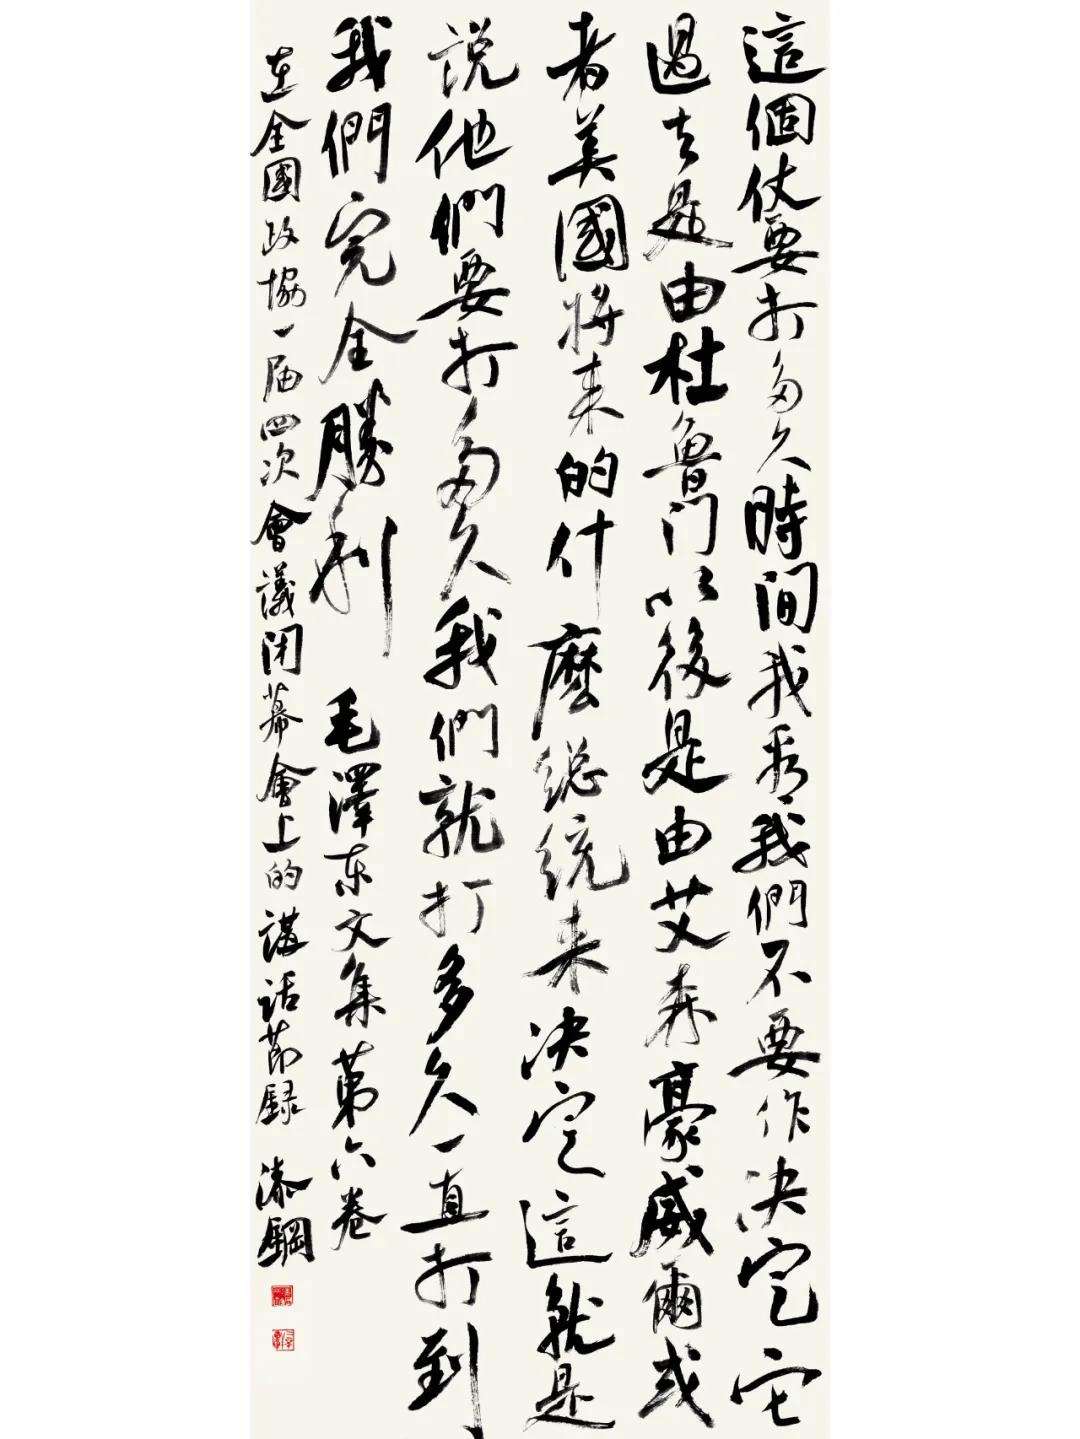 這個仗要打多久時間我看我們不要作决定它
過去是由杜魯門以後是由艾森豪威爾或
者美國將来的什麽総統来决定這就是
説他們要打多久我們就打多久一直打到
我們完全勝利 毛澤东文集第六卷
在全國政協一届四次會議闭幕會上的講话節録 添鋼